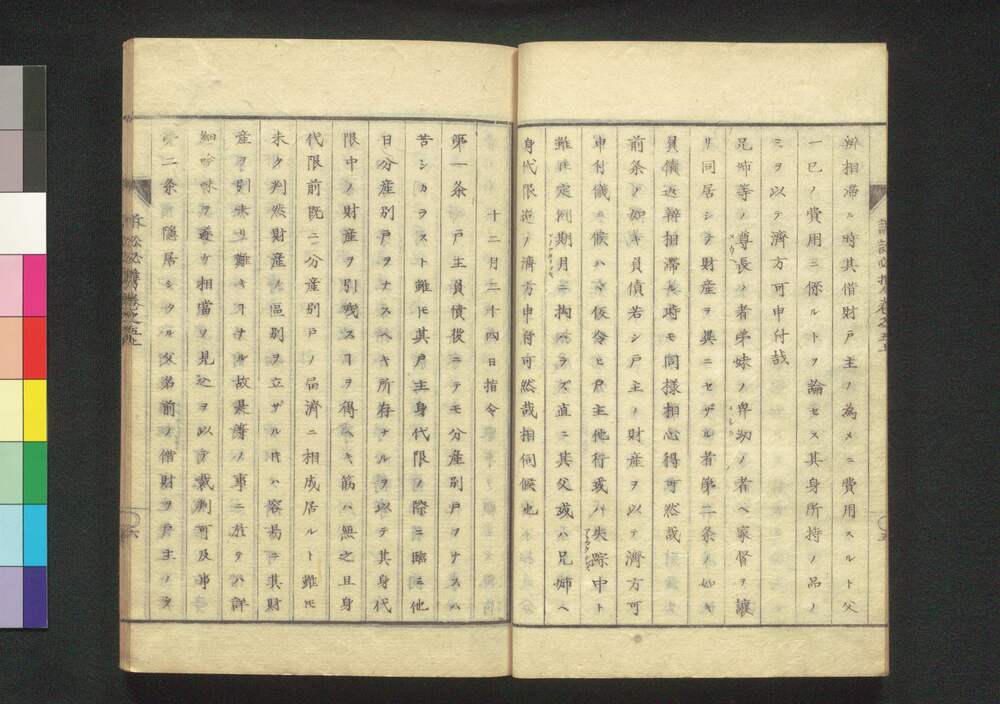 辨相滞ル時其借財戸主ノ為メニ費用スルト父
一已ノ費用ニ係ルトヲ論セス其身所持ノ品ノ
ミヲ以テ済方可申付哉
兄姉等ノ尊長ノ者弟妹ノ卑幼ノ者ヘ家督ヲ譲
リ同居シテ財産ヲ異ニセザル者第二条ノ如キ
負債返辨相滞ル時モ同様相心得可然哉
前条ノ如キ負債若シ戸主ノ財産ヲ以テ済方可
申付儀ニ候ハヽ仮令ヒ戸主他行或ハ失踪中ト
雖モ定例期月ニ拘ハラズ直ニ其父或ハ兄姉ヘ
身代限迄ノ済方申付可然哉相伺候也
十二月二十四日指令
第一条　戸主負債後ニテモ分産別戸ヲナスハ
苦シカラスト雖モ其戸主身代限ノ際ニ臨ミ他
日分産別戸ヲナスヘキ所存ナルヲ以テ其身代
限中ノ財産ヲ引残スヿヲ得ヘキ筋ハ無之且身
代限前既ニ分産別戸ノ届済ニ相成居ルト雖モ
未タ判然財産ノ区別ヲ立ザル時ハ容易ニ其財
産ヲ引残リ難キヿナル故是等ノ事ニ於テハ詳
細吟味ヲ遂ケ相當ノ見込ヲ以テ裁判可及事
第二条　隠居シタル父名前ノ借財ヲ戸主ノタ